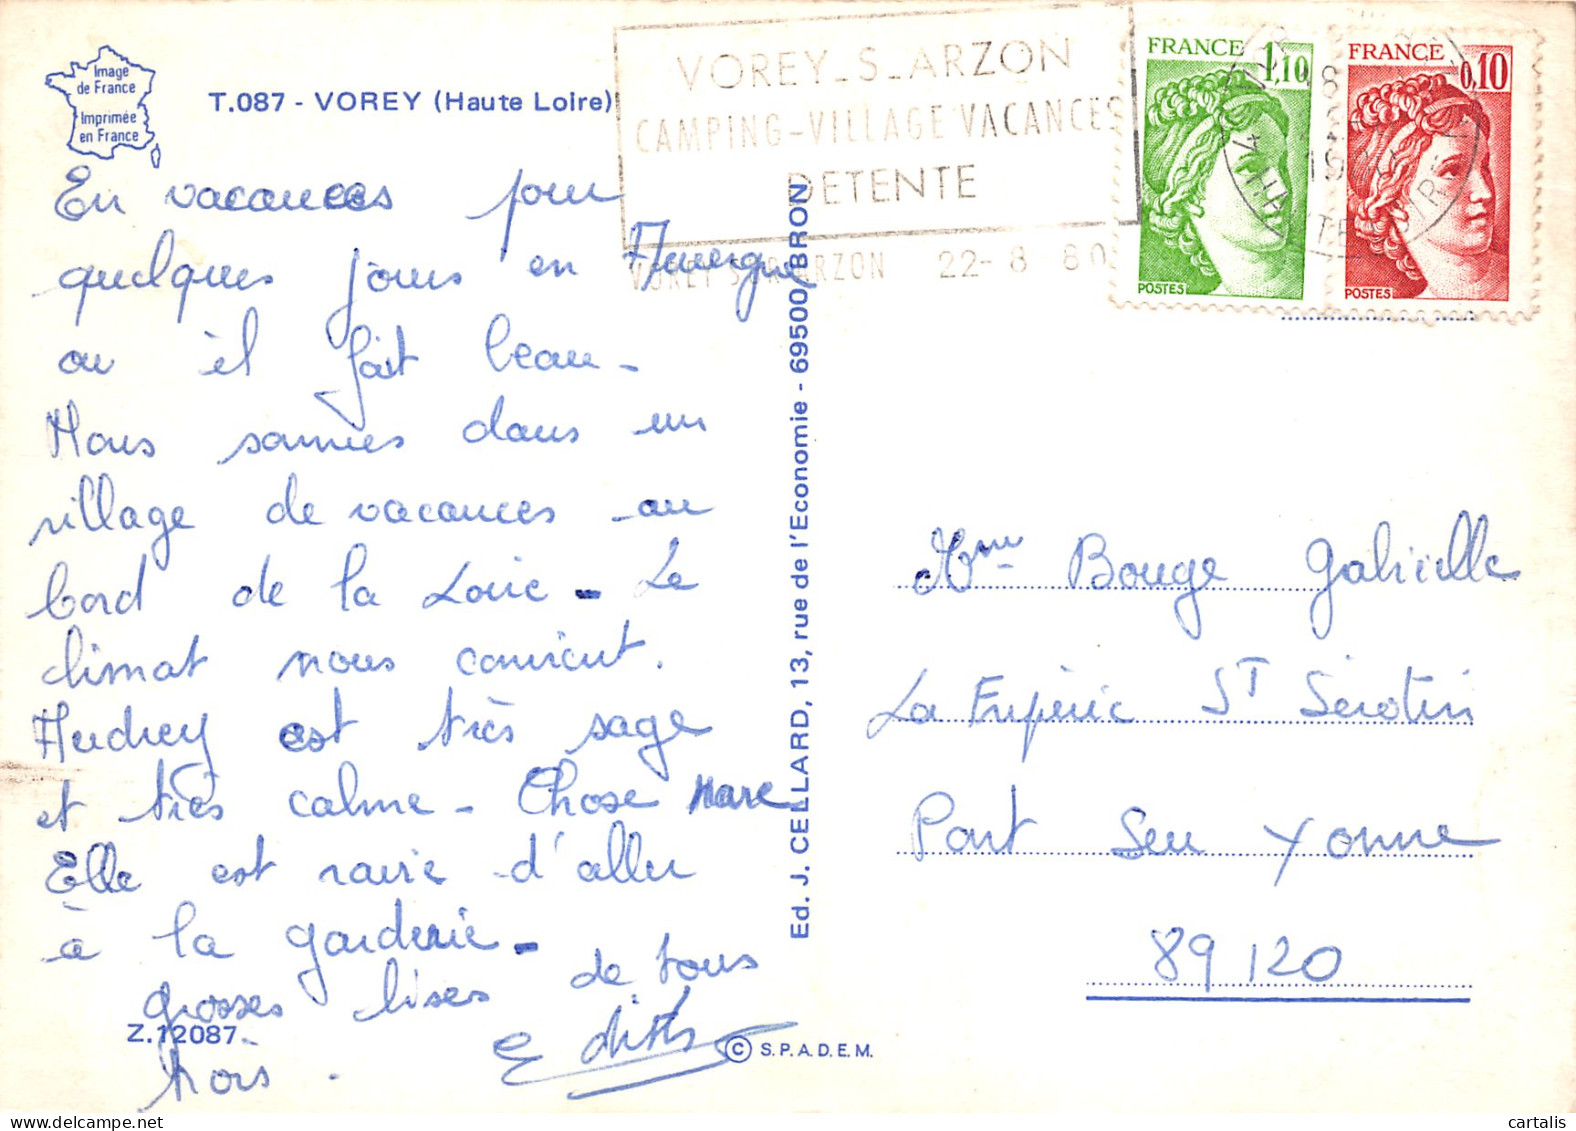 Image
de France
Imprimée
en France
T.087 - VOREY (Haute Loire)
VOREY_S_ARZON
CAMPING-VILLAGE VACANCES
DETENTE
VOREY SUR ARZON 22-8 80
FRANCE 1,10
POSTES
FRANCE 0,10
POSTES
En vacances pour
quelques jours en Auvergne
ou il fait beau_
Nous sommes dans un
village de vacances au
bord de la Loire - Le
climat nous convient.
Audrey est très sage
et très calme - Chose rare
Elle est ravie d'aller
à la garderie -
grosses bises de tous
trois.
Edith
Z.12087
© S.P.A.D.E.M.
Ed. J. CELLARD, 13, rue de l'Economie - 69500 BRON
Mme Bouge Gabrielle
La St Sérotin
Pont Sur Yonne
89120